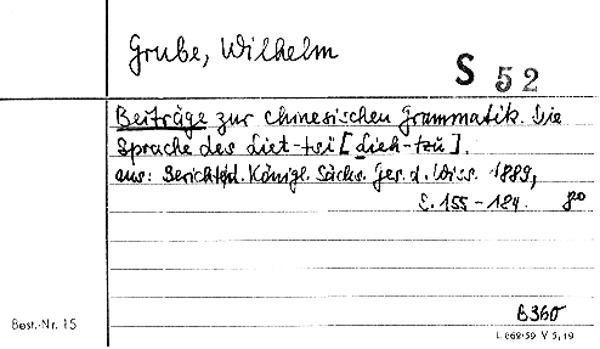 Grube, Wilhelm
S 52
Beiträge zur chinesischen Grammatik. Die
Sprache des Liet-tsi [Lieh-tzŭ].
aus: Berichte d. Königl. Sächs. Ges. d. Wiss. 1889,
S. 155-184. 8°
B 360
Best.-Nr. 15
L 668-59 V 5, 19